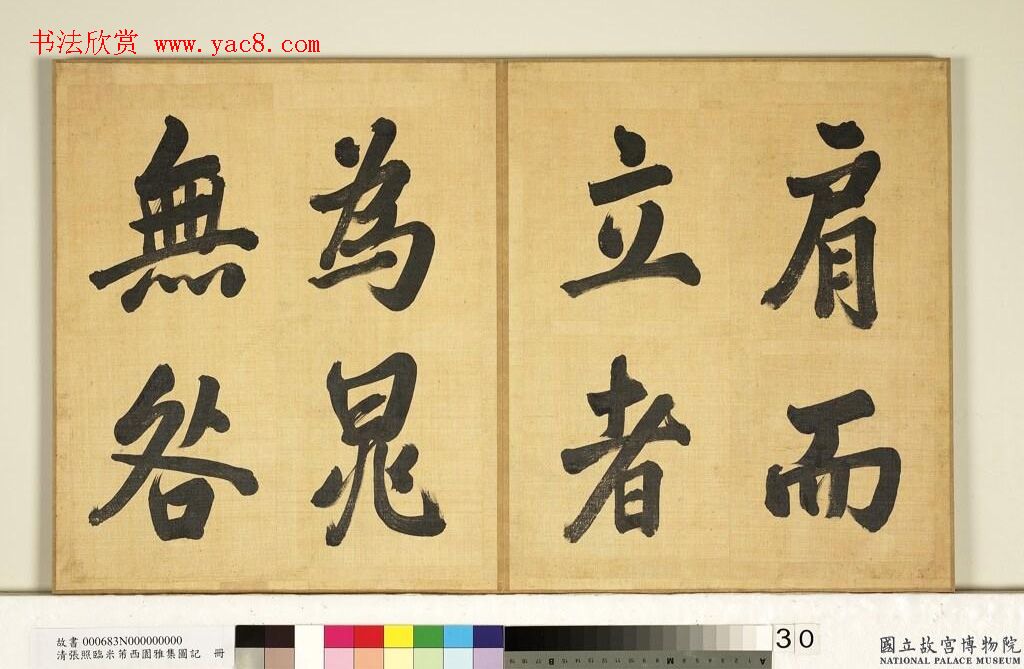 书法欣赏 www.yac8.com
肩而
立者
為晁
無咎
故書 000683N000000000
清張照臨米芾西園雅集圖記 冊
30
國立故宮博物院
NATIONAL PALACE MUSEUM